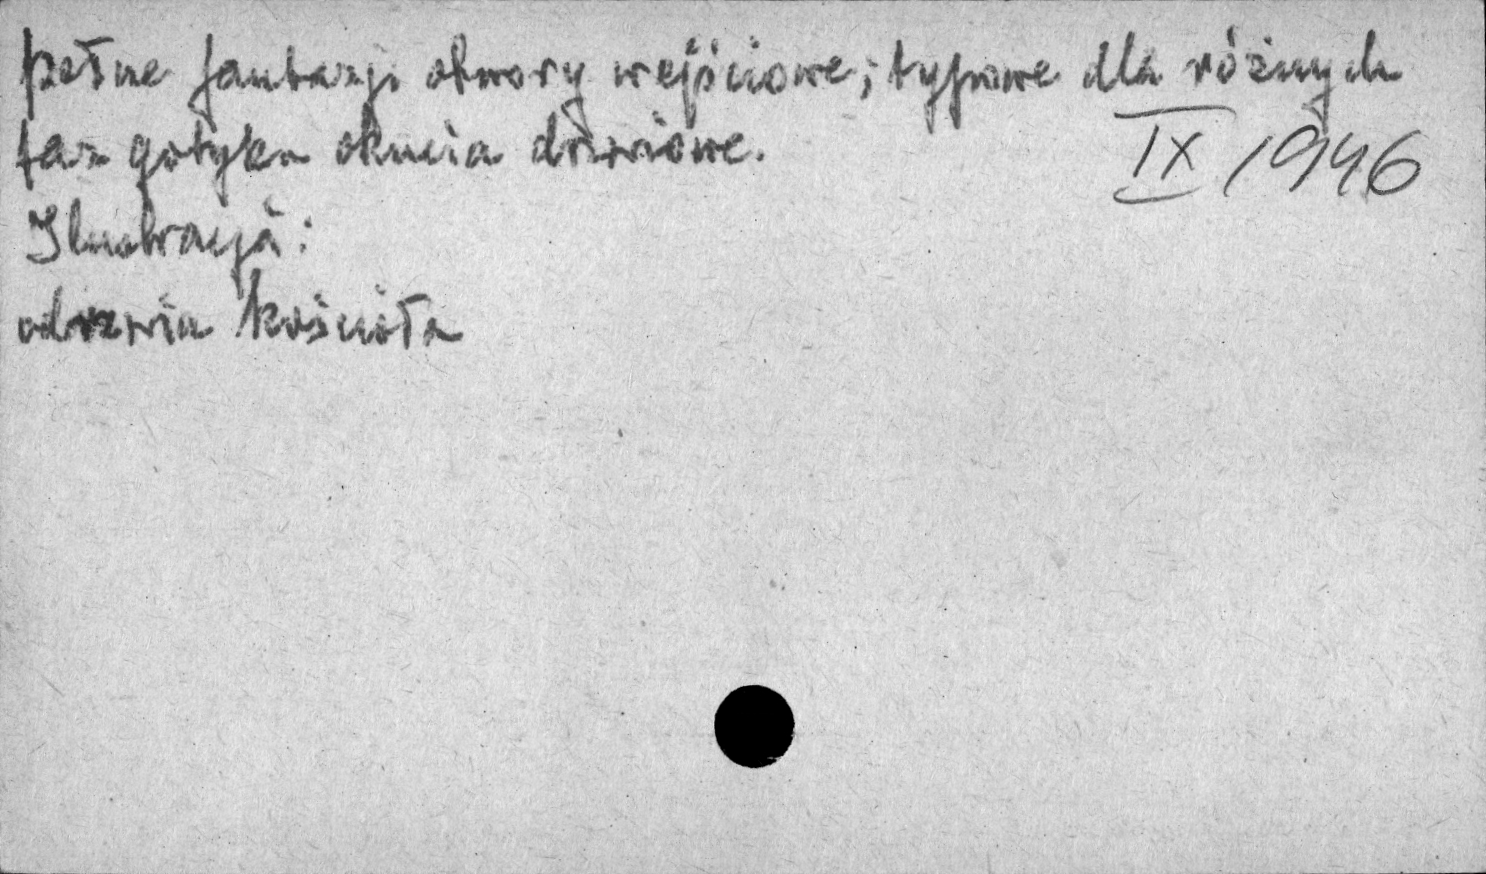 pełne fantazji otwory wejściowe; typowe dla różnych
faz gotyku okucia drzwiowe.
IX 1946
Ilustracja:
odrzwia kościoła